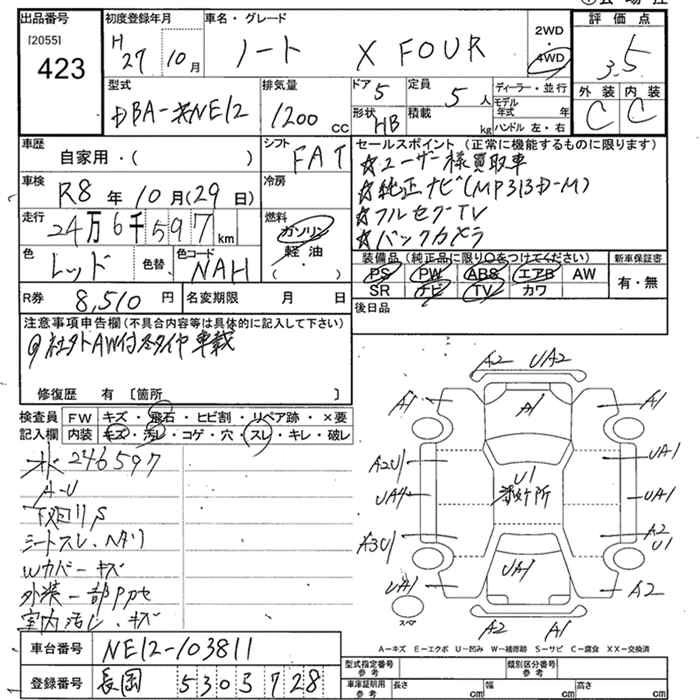 出品番号
[2055]
423
初度登録年月
H 27 10月
車名・グレード
ノート X FOUR
2WD
・
4WD
評価点
3.5
外装 内装
C C
型式
DBA-NE12
排気量
1200 cc
ドア 5
定員 5人
ディーラー・並行
形状 HB
積載 kg
モデル年式 年
ハンドル 左・右
車歴
自家用・( )
シフト
FAT
車検
R8年10月(29日)
冷房
走行
24万6千597km
燃料
ガソリン
軽油
( ・ )
色
レッド
色替
色コード
NAH
R券 8,510円
名変期限 月 日
セールスポイント (正常に機能するものに限ります)
☆ユーザー様買取車
☆純正ナビ(MP313D-M)
☆フルセグTV
☆バックカメラ
装備品(純正品に限り○をつけてください)
PS PW ABS エアB AW
SR ナビ TV カワ
新車保証書
有・無
後日品
注意事項申告欄(不具合内容等は具体的に記入して下さい)
社外AW付冬タイヤ車載
修復歴 有 [箇所 ]
検査員 FW キズ・飛石・ヒビ割・リペア跡・×要
記入欄 内装 キズ・汚レ・コゲ・穴・スレ・キレ・破レ
246597
A-U
下廻りS
シートスレ・ヘタリ
Wカバーキズ
外装一部
室内汚レ・キズ
A2 UA2
A1 A1 A1
A2U1 UA1
U1
UA4 UA1
A3U1 A2 U1
UA1 UA1 A2
スペア
A2 A1
A-キズ E-エクボ U-凹み W-補修跡 S-サビ C-腐食 XX-交換済
車台番号 NE12-103811
登録番号 長岡 530 5 728
型式指定番号 参考
類別区分番号 参考
車庫証明用 参考 長さ cm 幅 cm 高さ cm